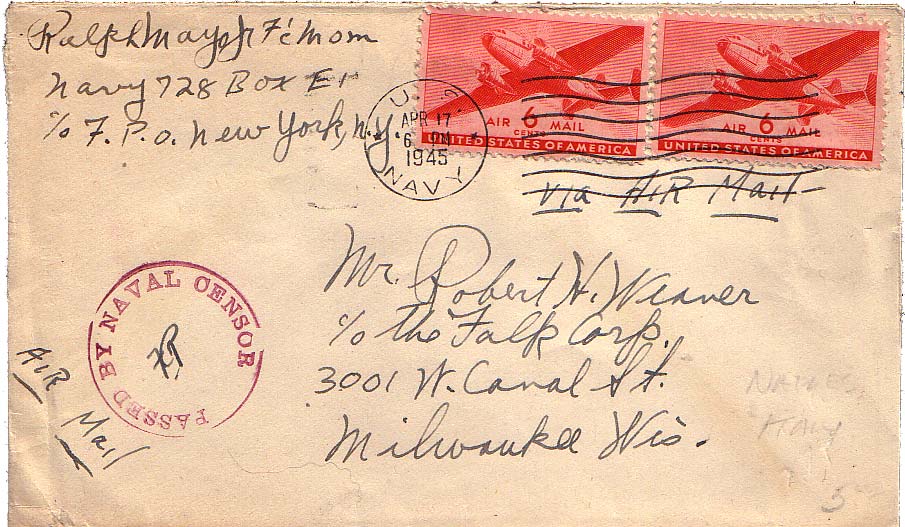 Ralph Mayo Jr F1c Mom
Navy 728 Box E1
c/o F.P.O. New York, N.Y.
U.S.
APR 17
6 PM
1945
NAVY
AIR 6 MAIL
CENTS
UNITED STATES OF AMERICA
AIR 6 MAIL
CENTS
UNITED STATES OF AMERICA
via AIR Mail
PASSED BY NAVAL CENSOR
Mr. Robert H. Weaver
c/o the Falk Corp.
3001 W. Canal St.
Milwaukee Wis.
AIR
Mail
NAPLES,
ITALY